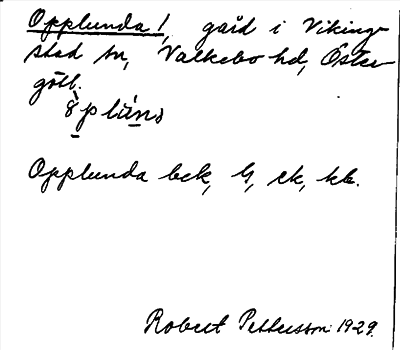 Opplunda /, gård i Viking-
stad sn, Valkebo hd, Öster-
götl.
Opplunda bck, G, ek, kb.
Robert Pettersson 1929.